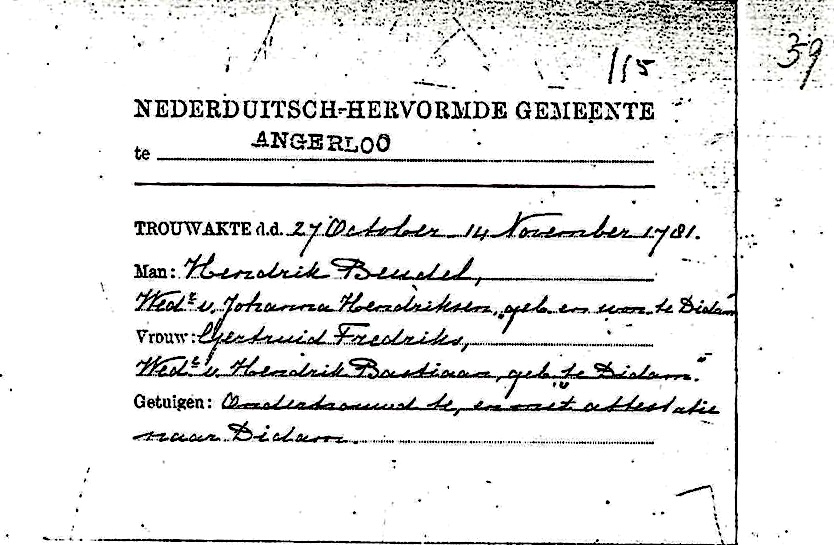 115
39
NEDERDUITSCH-HERVORMDE GEMEENTE
te ANGERLOO
TROUWAKTE d.d. 27 October 14 November 1781.
Man: Hendrik Beudel,
Wedr v. Johanna Hendriksen, geb en won te Didam
Vrouw: Gertruid Fredriks,
Wede v. Hendrik Bastiaan, geb. te Didam.
Getuigen: Ondertrouwd te, en met attestatie
naar Didam.